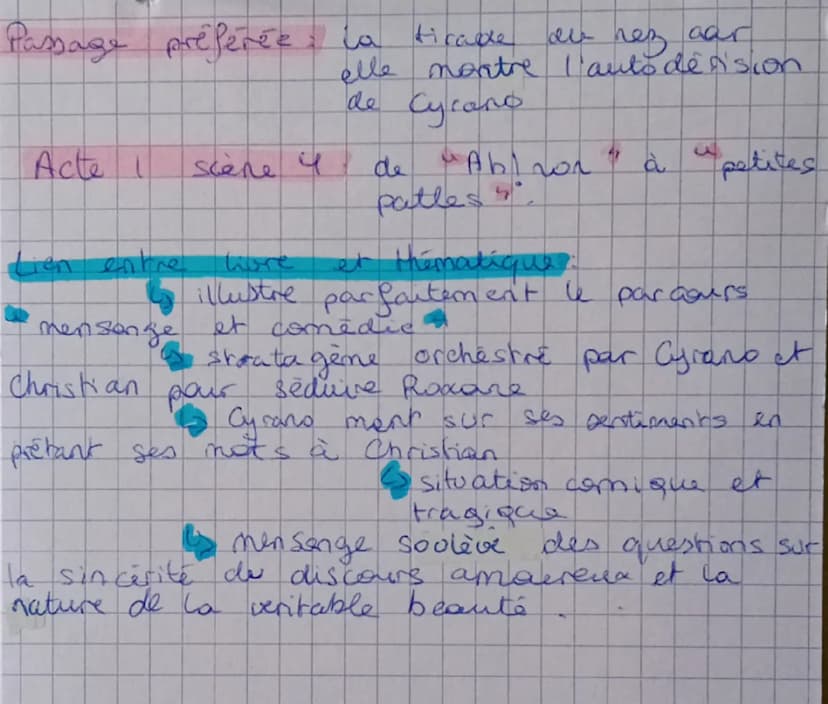 Passage préférée : la tirade du nez car
elle montre l'autodérision
de Cyrano
Acte 1 scène 4 : de "Ah! non" à "petites
pattes".
Lien entre livre et thématique :
illustre parfaitement le parcours
"mensonge et comédie"
stratagème orchéstré par Cyrano et
Christian pour séduire Roxane
Cyrano ment sur ses sentiments en
prêtant ses mots à Christian
situation comique et
tragique
mensonge soulève des questions sur
la sincérité du discours amoureux et la
nature de la veritable beauté.